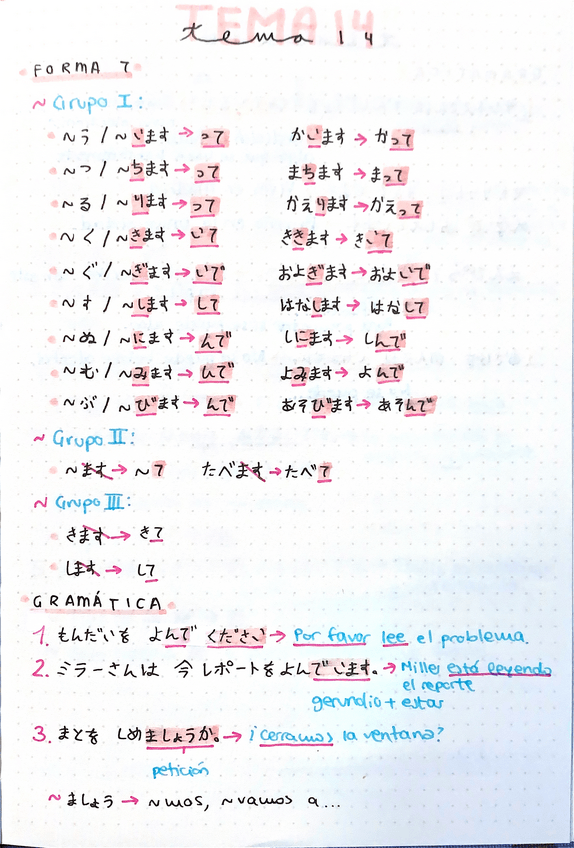 TEMA 14
tema 14
FORMA て
~ Grupo I:
~う / ~います → って かいます → かって
~つ / ~ちます → って まちます → まって
~る / ~ります → って かえります → かえって
~く / ~きます → いて ききます → きいて
~ぐ / ~ぎます → いで およぎます → およいで
~す / ~します → して はなします → はなして
~ぬ / ~にます → んで しにます → しんで
~む / ~みます → んで よみます → よんで
~ぶ / ~びます → んで あそびます → あそんで
~ Grupo II:
~ます → ~て たべます → たべて
~ Grupo III:
きます → きて
します → して
GRAMÁTICA
1. もんだいを よんで ください → Por favor lee el problema.
2. ミラーさんは 今 レポートをよんでいます。 → Miller está leyendo
el reporte
gerundio + estar
3. まとを しめましょうか。 → ¿Cerramos la ventana?
petición
~ ましょう → ~mos, ~vamos a...